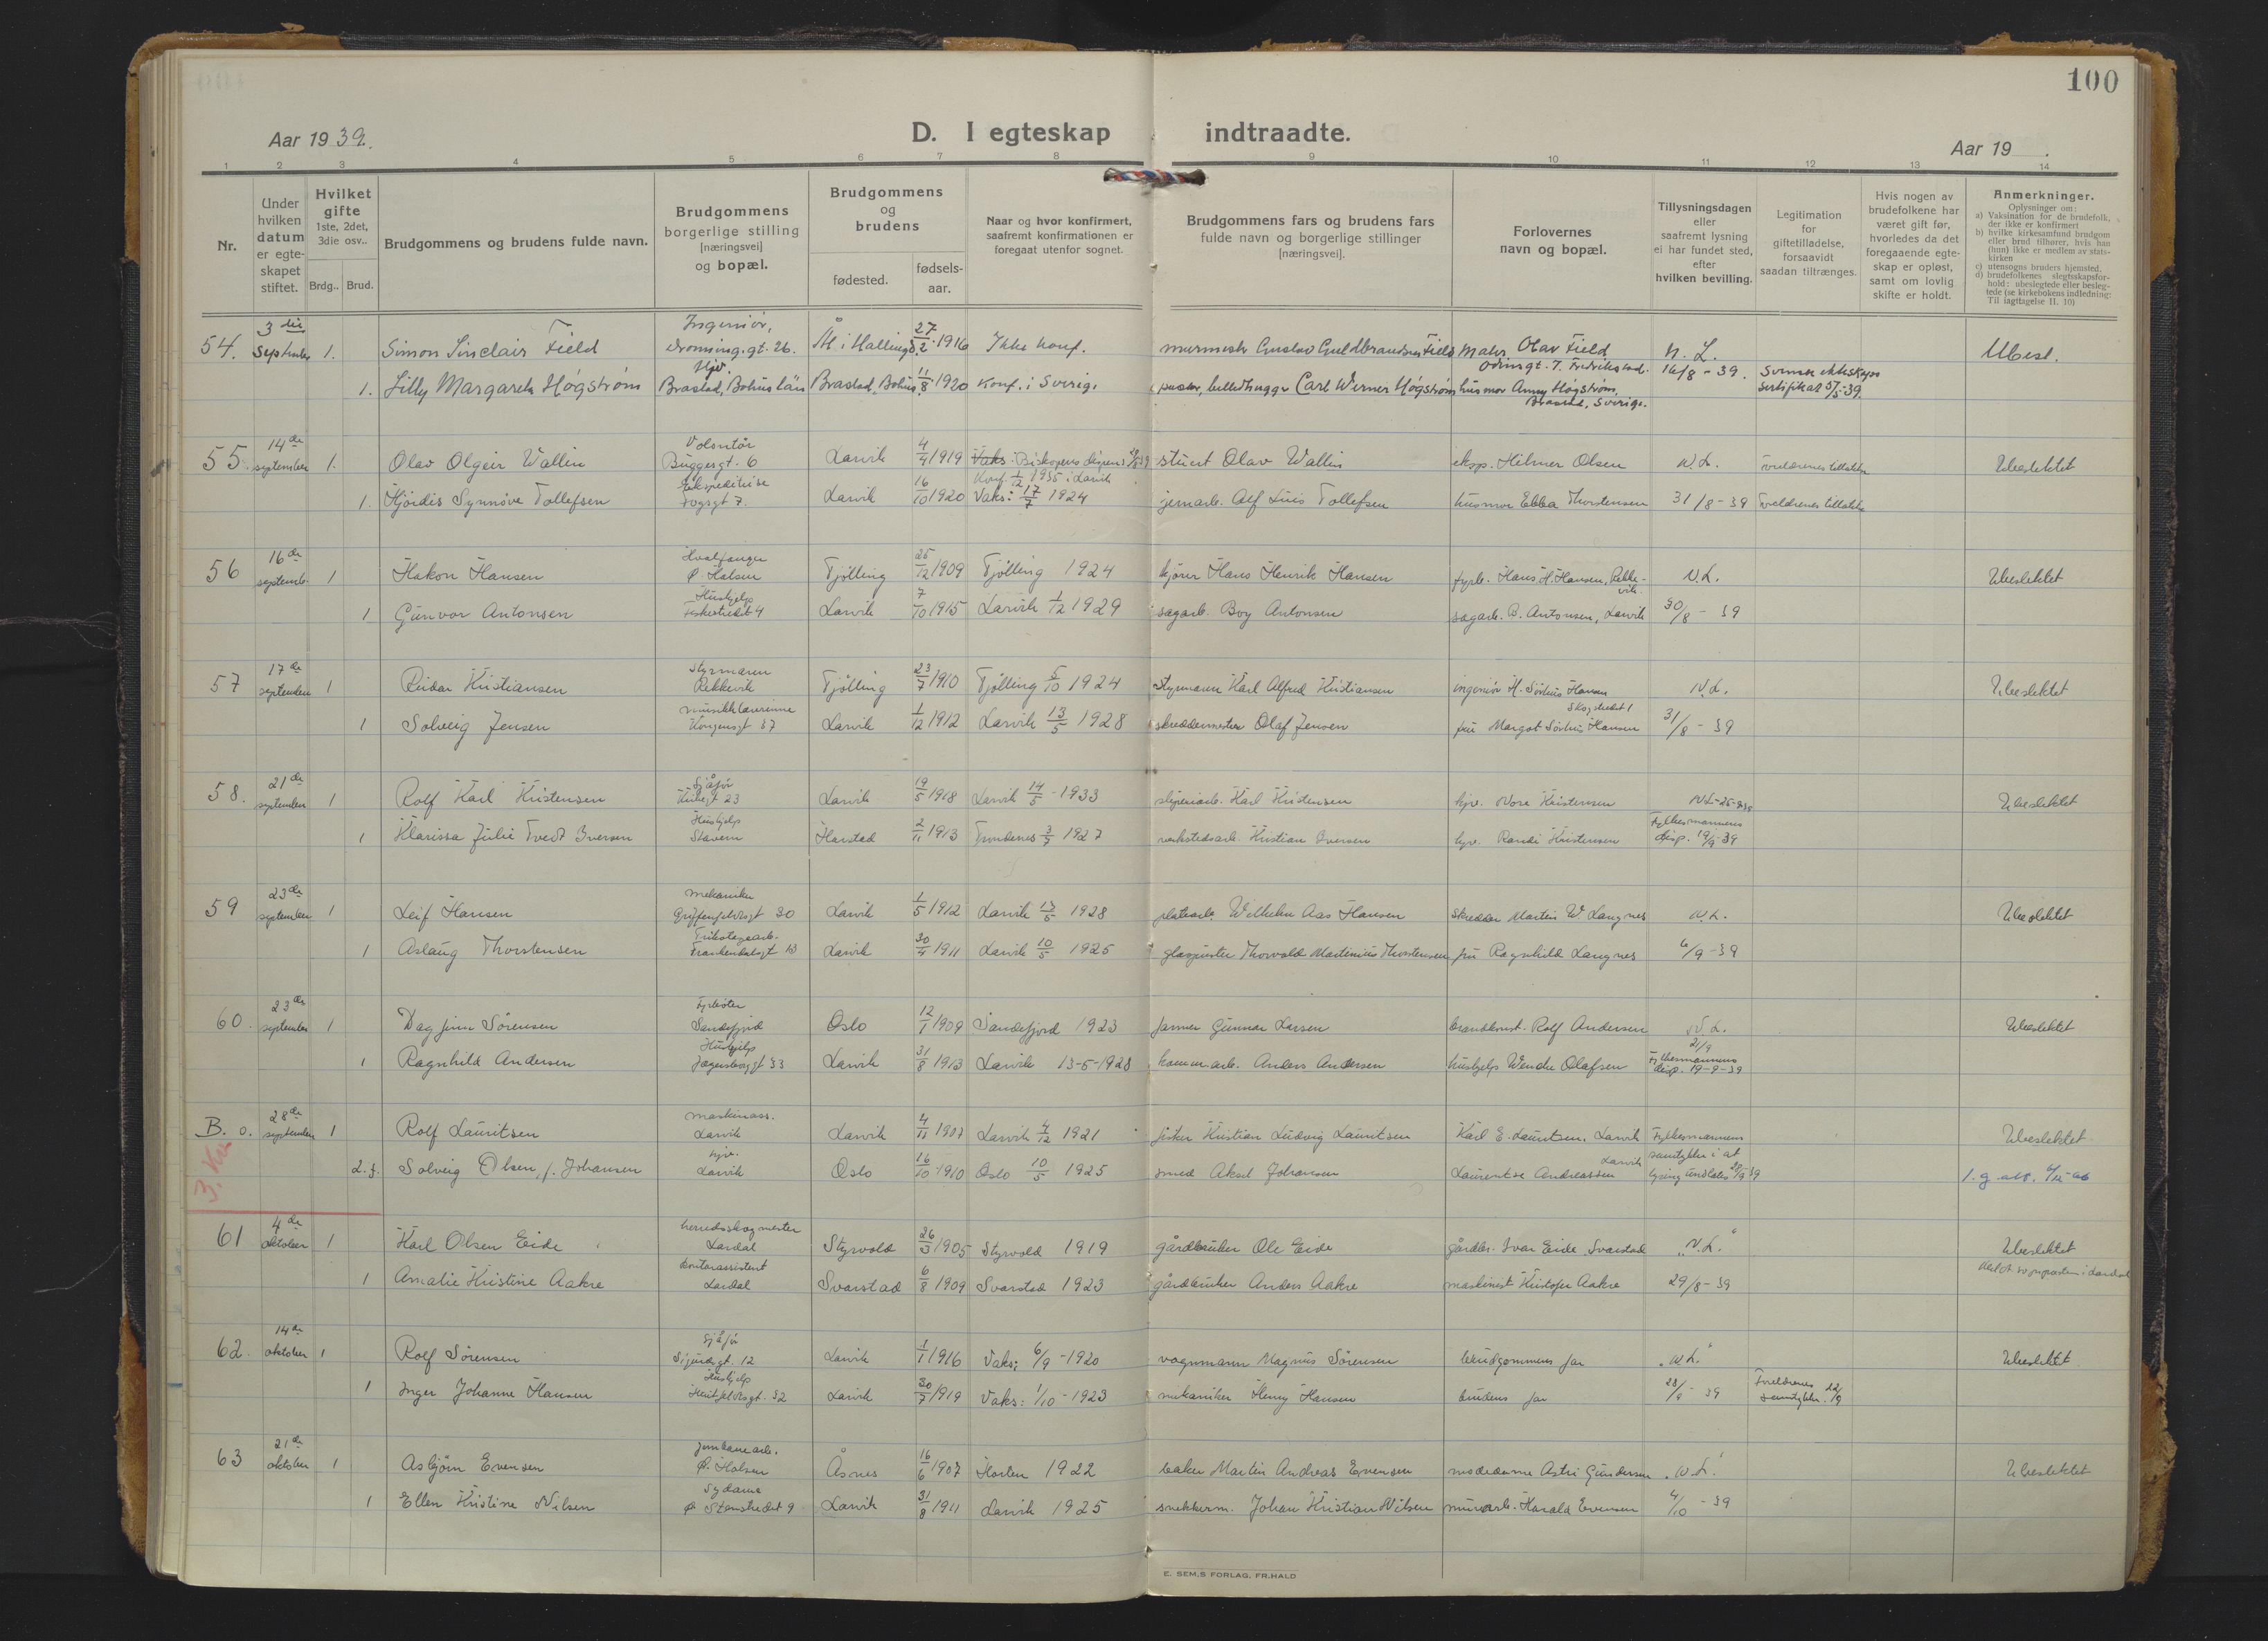 100
Aar 1939.
D. I egteskap indtraadte.
Aar 19 .
1 2 3 4 5 6 7 8 9 10 11 12 13 14
Nr.
Under hvilken datum er egteskapet stiftet.
Hvilket gifte
1ste, 2det, 3die osv..
Brdg.. Brud.
Brudgommens og brudens fulde navn.
Brudgommens borgerlige stilling [næringsvei] og bopæl.
Brudgommens og brudens
fødested.
fødsels-aar.
Naar og hvor konfirmert, saafremt konfirmationen er foregaat utenfor sognet.
Brudgommens fars og brudens fars fulde navn og borgerlige stillinger [næringsvei].
Forlovernes navn og bopæl.
Tillysningsdagen eller saafremt lysning ei har fundet sted, efter hvilken bevilling.
Legitimation for giftetilladelse, forsaavidt saadan tiltrænges.
Hvis nogen av brudefolkene har været gift før, hvorledes da det foregaaende egteskap er opløst, samt om lovlig skifte er holdt.
Anmerkninger.
Oplysninger om:
a) Vaksination for de brudefolk, der ikke er konfirmert
b) hvilke kirkesamfund brudgom eller brud tilhører, hvis han (hun) ikke er medlem av statskirken
c) utensogns bruders hjemsted.
d) brudefolkenes slegtsskapsforhold: ubeslegtede eller beslegtede (se kirkebokens indledning: Til iagttagelse II. 10)
54. 3die september 1. Simon Sinclair Field Ingeniør, Dronning.gt. 26. Ål i Hallingd. 27/2 1916 Ikke konf. murmester Gustav Guldbrandsen Field Matr. Olav Field Odinsgt. 7. Fredrikstad. N. L. Ubesl.
1. Lilly Margareta Høgstrøm Hjv. Brastad, Bohus län Brastad, Bohus. 11/8 1920 Konf. i Sverige Carl Werner Høgstrøm husmor Anny Høgström, Brastad, Sverige. 16/8-39. Svensk ekteskaps sertifikat
55. 14de september 1. Olav Olgeir Wallin Volontør Byggesgt. 6 Larvik 4/4 1919 Vaks: Biskopens dispens Konf. 1/12 1935 i Larvik stuert Olav Wallin eksp. Hilmer Olsen N.L. Foreldrenes tillatelse Ubeslektet
1. Hjørdis Synnøve Tollefsen Ekspeditrise Fogsgt 7. Larvik 16/10 1920 Vaks: 17/7 1924 jernarb. Alf Luis Tollefsen husmor Ebba Thorstensen 31/8-39 Foreldrenes tillatelse
56 16de septemb. 1 Håkon Hansen Hvalfanger Ø. Halsen Tjølling 25/12 1909 Tjølling 1924 kjører Hans Henrik Hansen fyrb. Hans H. Hansen, Rekkevik. N.L. Ubeslektet
1 Gunvor Antonsen Hushjelp Larvik 7/10 1915 Larvik 1/12 1929 sagarb. Boy Antonsen sagarb. B. Antonsen, Larvik 30/8-39
57 17de september 1 Reidar Kristiansen Styrmann Rekkevik Tjølling 23/7 1910 Tjølling 5/10 1924 Styrmann Karl Alfred Kristiansen ingeniør H. Sørhus Hansen Skogstredet 1 N.L. Ubeslektet
1 Solveig Jensen musikklærerinne Kongensgt 37 Larvik 1/12 1912 Larvik 13/5 1928 skreddermester Olaf Jensen fru Margot Sørhus Hansen 31/8-39
58. 21de september 1 Rolf Karl Kristensen Sjåfør Kirkegt 23 Larvik 19/5 1918 Larvik 14/5-1933 sliperiarb. Karl Kristensen hjv. Nora Kristensen N.L. Ubeslektet
1 Klarissa Julie Tvedt Iversen Hushjelp Stavern Harstad 2/11 1913 Trondenes 3/7 1927 verkstedsarb. Kristian Iversen hjv. Randi Kristensen Fylkesmannens disp. 19/9-39
59 23de september 1 Leif Hansen mekaniker Griffenfeldtsgt 30 Larvik 1/5 1912 Larvik 13/5 1928 platearb. Wilhelm Aas Hansen Skredder Martin W Langnes N.L. Ubeslektet
1 Aslaug Thorstensen Trikotagearb. Frankendalsgt 13 Larvik 30/4 1911 Larvik 10/5 1925 glasspuster Thorvald Martinius Thorstensen fru Ragnhild Langnes 6/9-39
60. 23de september 1 Dagfinn Sørensen Fyrbøter Sandefjord Oslo 12/1 1909 Sandefjord 1923 farmer Gunnar Larsen brandkonst. Rolf Andersen N.L. 21/9 Ubeslektet
1 Ragnhild Andersen Hushjelp Jegersborggt 33 Larvik 31/8 1913 Larvik 13-5-1928 kommunearb. Anders Andersen hushjelp Wenche Olafsen Fylkesmannens disp. 19-9-39
B. o. 28de september 1 Rolf Lauritsen maskinass. Larvik Larvik 4/11 1907 Larvik 4/12 1921 fisker Kristian Ludvig Lauritsen Karl E. Lauritsen, Larvik Fylkesmannens Ubeslektet.
2. f. Solveig Olsen, f. Johansen hjv. Larvik Oslo 16/10 1910 Oslo 10/5 1925 smed Aksel Johansen Laurentse Andreassen Larvik samtykke i at lysing unnlates 28/9-39
3. Kv.
61 4de oktober 1 Karl Olsen Eide herredsskogmester Lardal Styrvold 26/3 1905 Styrvold 1919 gårdbruker Ole Eide gårdbr. Ivar Eide Svarstad "N.L." Ubeslektet
1 Amalie Kristine Aakre kontorassistent Lardal Svarstad 6/8 1909 Svarstad 1923 gårdbruker Anders Aakre maskinist Kristofer Aakre 29/8-39
62. 14de oktober 1 Rolf Sørensen Sjåfør Sigurdsgt. 12 Larvik 1/1 1916 Vaks: 6/9-1920 vognmann Magnus Sørensen brudgommens far "N.L." Ubeslektet.
1 Inger Johanne Hansen Hushjelp Larvik 30/7 1919 Vaks: 1/10-1923 mekaniker Henry Hansen brudens far 28/9-39 Foreldrenes samtykke. 22/9
63 21de oktober 1 Asbjørn Evensen Jernbanearb. Ø. Halsen Åsnes 16/6 1907 Horten 1922 baker Martin Andreas Evensen Astri Gundersen "N.L." Ubeslektet
1 Ellen Kristine Nilsen Sydame Ø Stenstredet 9 Larvik 31/8 1911 Larvik 1925 snekkerm. Johan Kristian Nilsen murarb. Harald Evensen 4/10-39
E. SEM,S FORLAG, FR.HALD